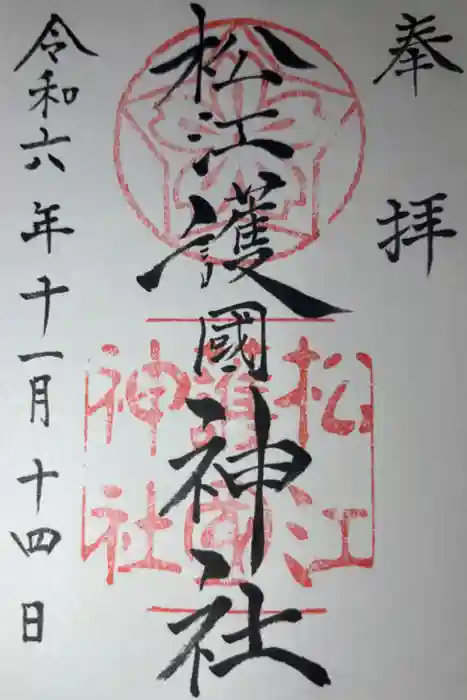 奉拝
松江護國神社
松江
護國
神社
令和六年十一月十四日